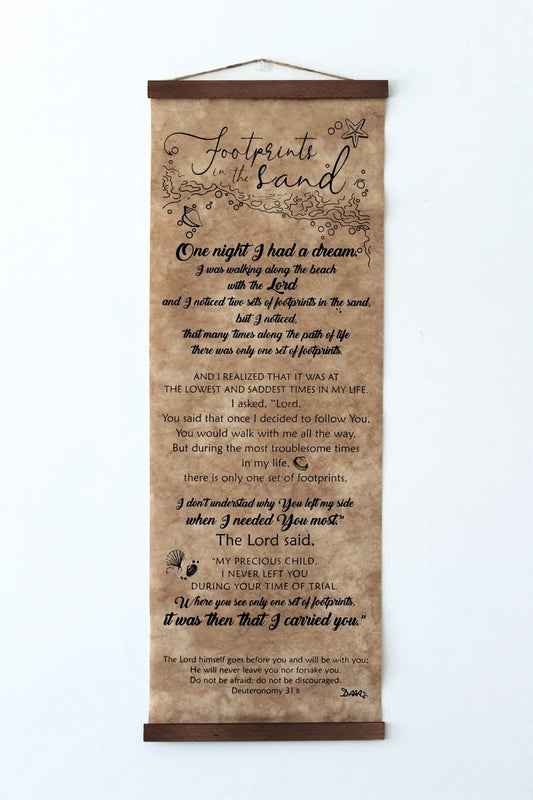 Footprints
in the
sand
One night I had a dream.
I was walking along the beach
with the Lord
and I noticed two sets of footprints in the sand,
but I noticed,
that many times along the path of life
there was only one set of footprints.
AND I REALIZED THAT IT WAS AT
THE LOWEST AND SADDEST TIMES IN MY LIFE.
I asked, "Lord,
You said that once I decided to follow You,
You would walk with me all the way.
But during the most troublesome times
in my life,
there is only one set of footprints.
I don't understad why You left my side
when I needed You most."
The Lord said,
"MY PRECIOUS CHILD,
I NEVER LEFT YOU
DURING YOUR TIME OF TRIAL.
Where you see only one set of footprints,
it was then that I carried you."
The Lord himself goes before you and will be with you;
He will never leave you nor forsake you.
Do not be afraid; do not be discouraged.
Deuteronomy 31 8